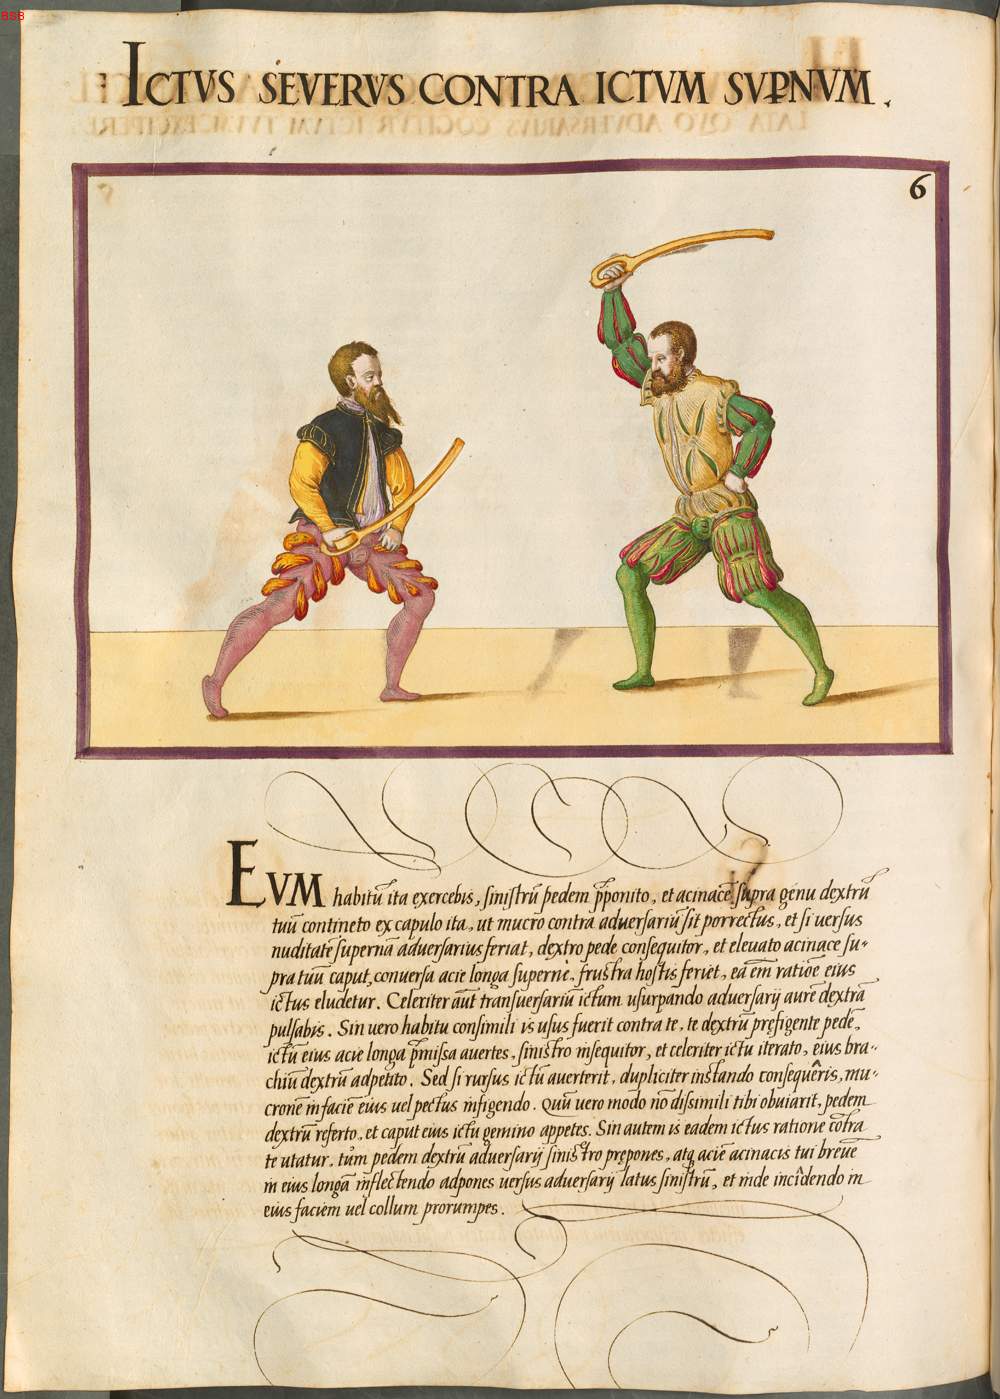 BSB
ICTVS SEVERVS CONTRA ICTVM SVꝐNVM.
6
EVM habitũ ita exercebis, sinistrũ pedem p̃ponito, et acinacẽ supra genu dextrũ
tuũ contineto ex capulo ita, ut mucro contra aduersariũ sit porrectus, et si uersus
nuditatẽ supernã aduersarius feriat, dextro pede consequitor, et eleuato acinace su-
pra tuũ caput, conuersa acie longa supernè, frustra hostis feriet, ea em̃ ratiõe eius
ictus eludetur. Celeriter aũt transuersariũ ictum usurpando aduersarij aurẽ dextrã
pulsabis. Sin uero habitu consimili is usus fuerit contra te, te dextrũ prefigente pedẽ,
ictũ eius acie longa p̃missa auertes, sinistro insequitor, et celeriter ictu iterato, eius bra-
chiũ dextrũ adpetito. Sed si rursus ictũ auerterit, dupliciter instando consequêris, mu-
cronẽ in faciẽ eius uel pectus infigendo. Quũ uero modo nõ dissimili tibi obuiarit, pedem
dextrũ referto, et caput eius ictu gemino appetes. Sin autem is eadem ictus ratione cõtra
te utatur, tũm pedem dextrũ aduersarij sinistro prepones, atq; aciẽ acinacis tui breuẽ
in eius longã inflectendo adpones uersus aduersarij latus sinistrũ, et inde incîdendo in
eius faciem uel collum prorumpes.